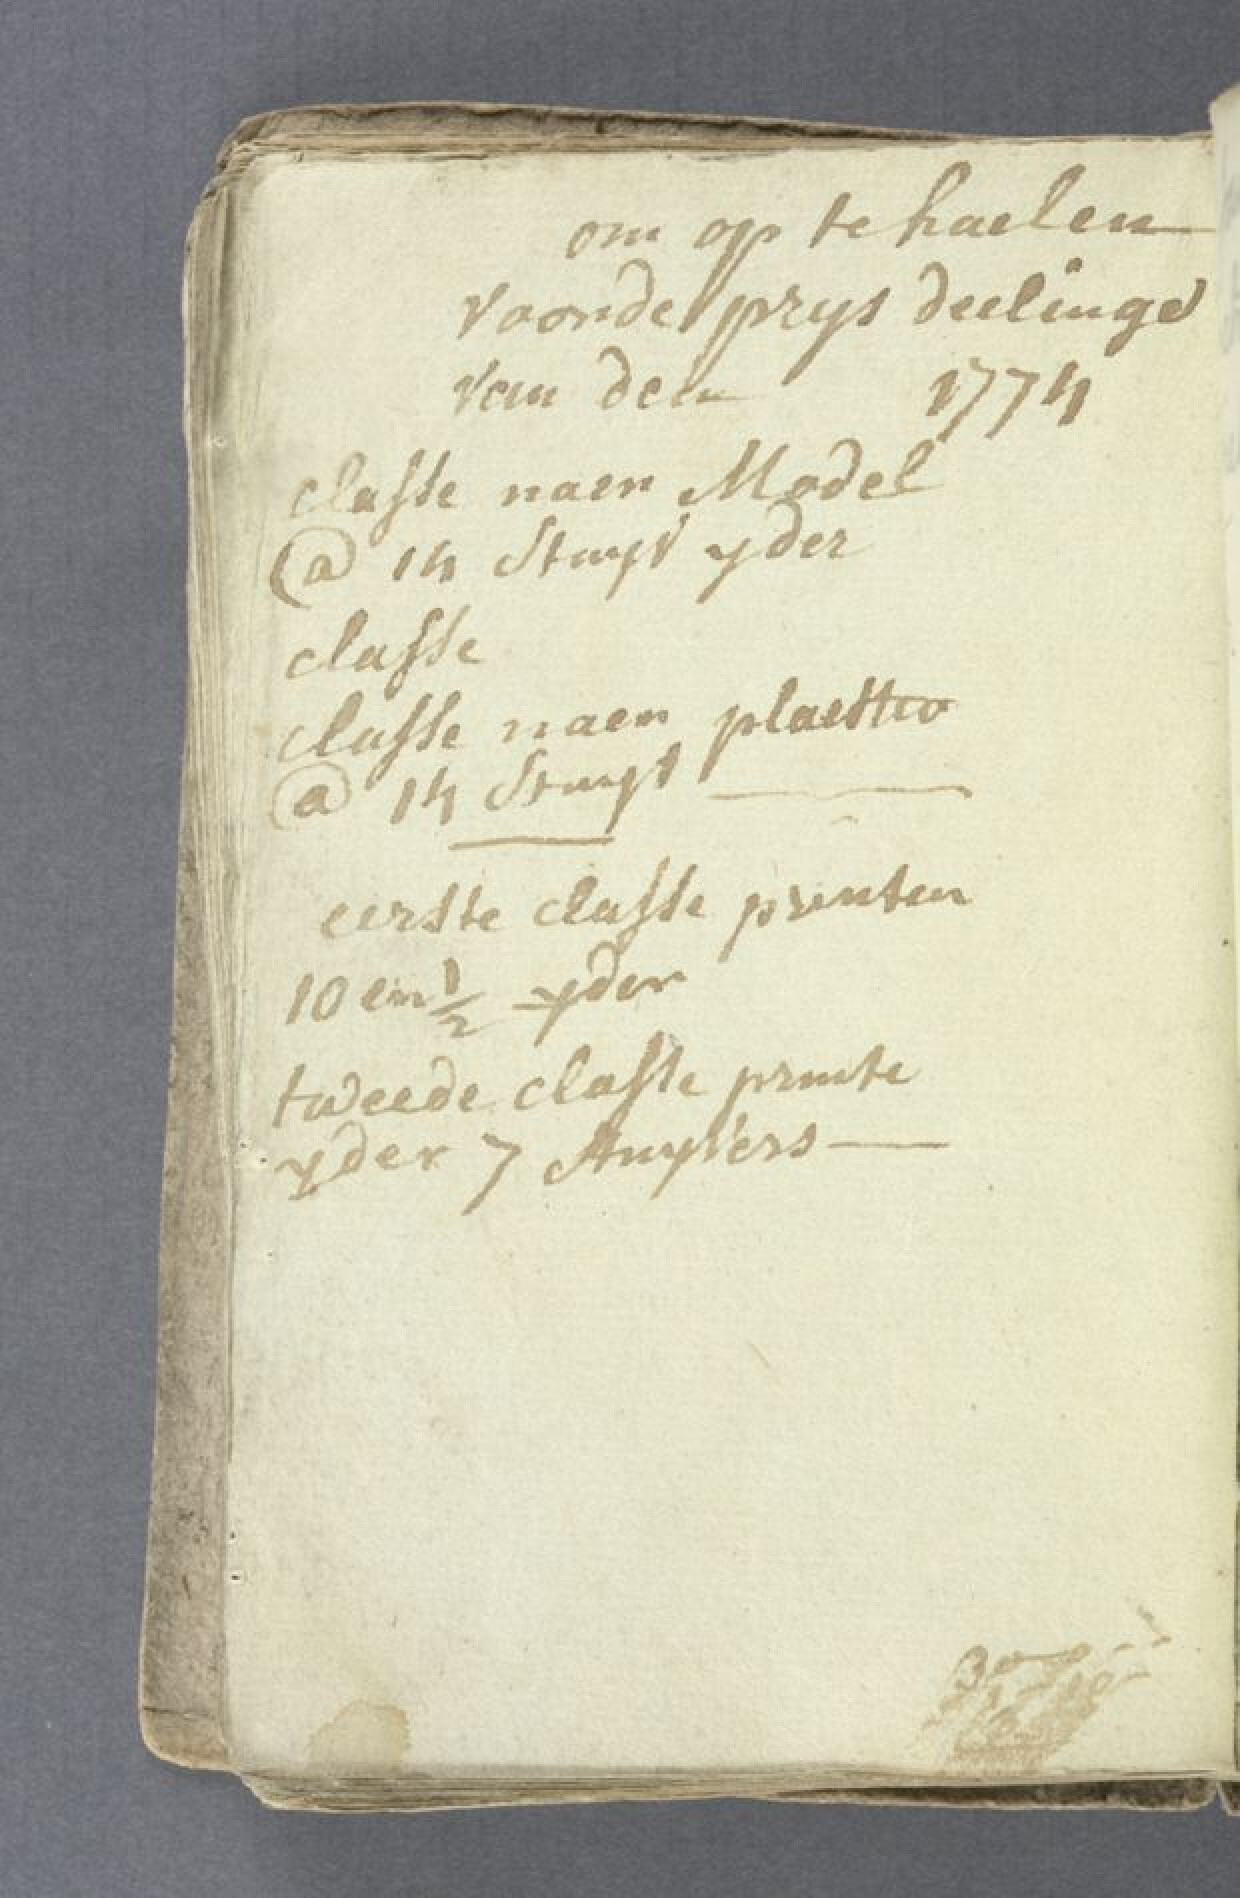 om op te haelen
voor de prys deelinge
van den 1774
classe naer Model
@ 14 Stuyv yder
classe
classe naer plaester
@ 14 Stuyv
eerste classe prenten
10 en 1/2 yder
tweede classe prente
yder 7 stuyvers